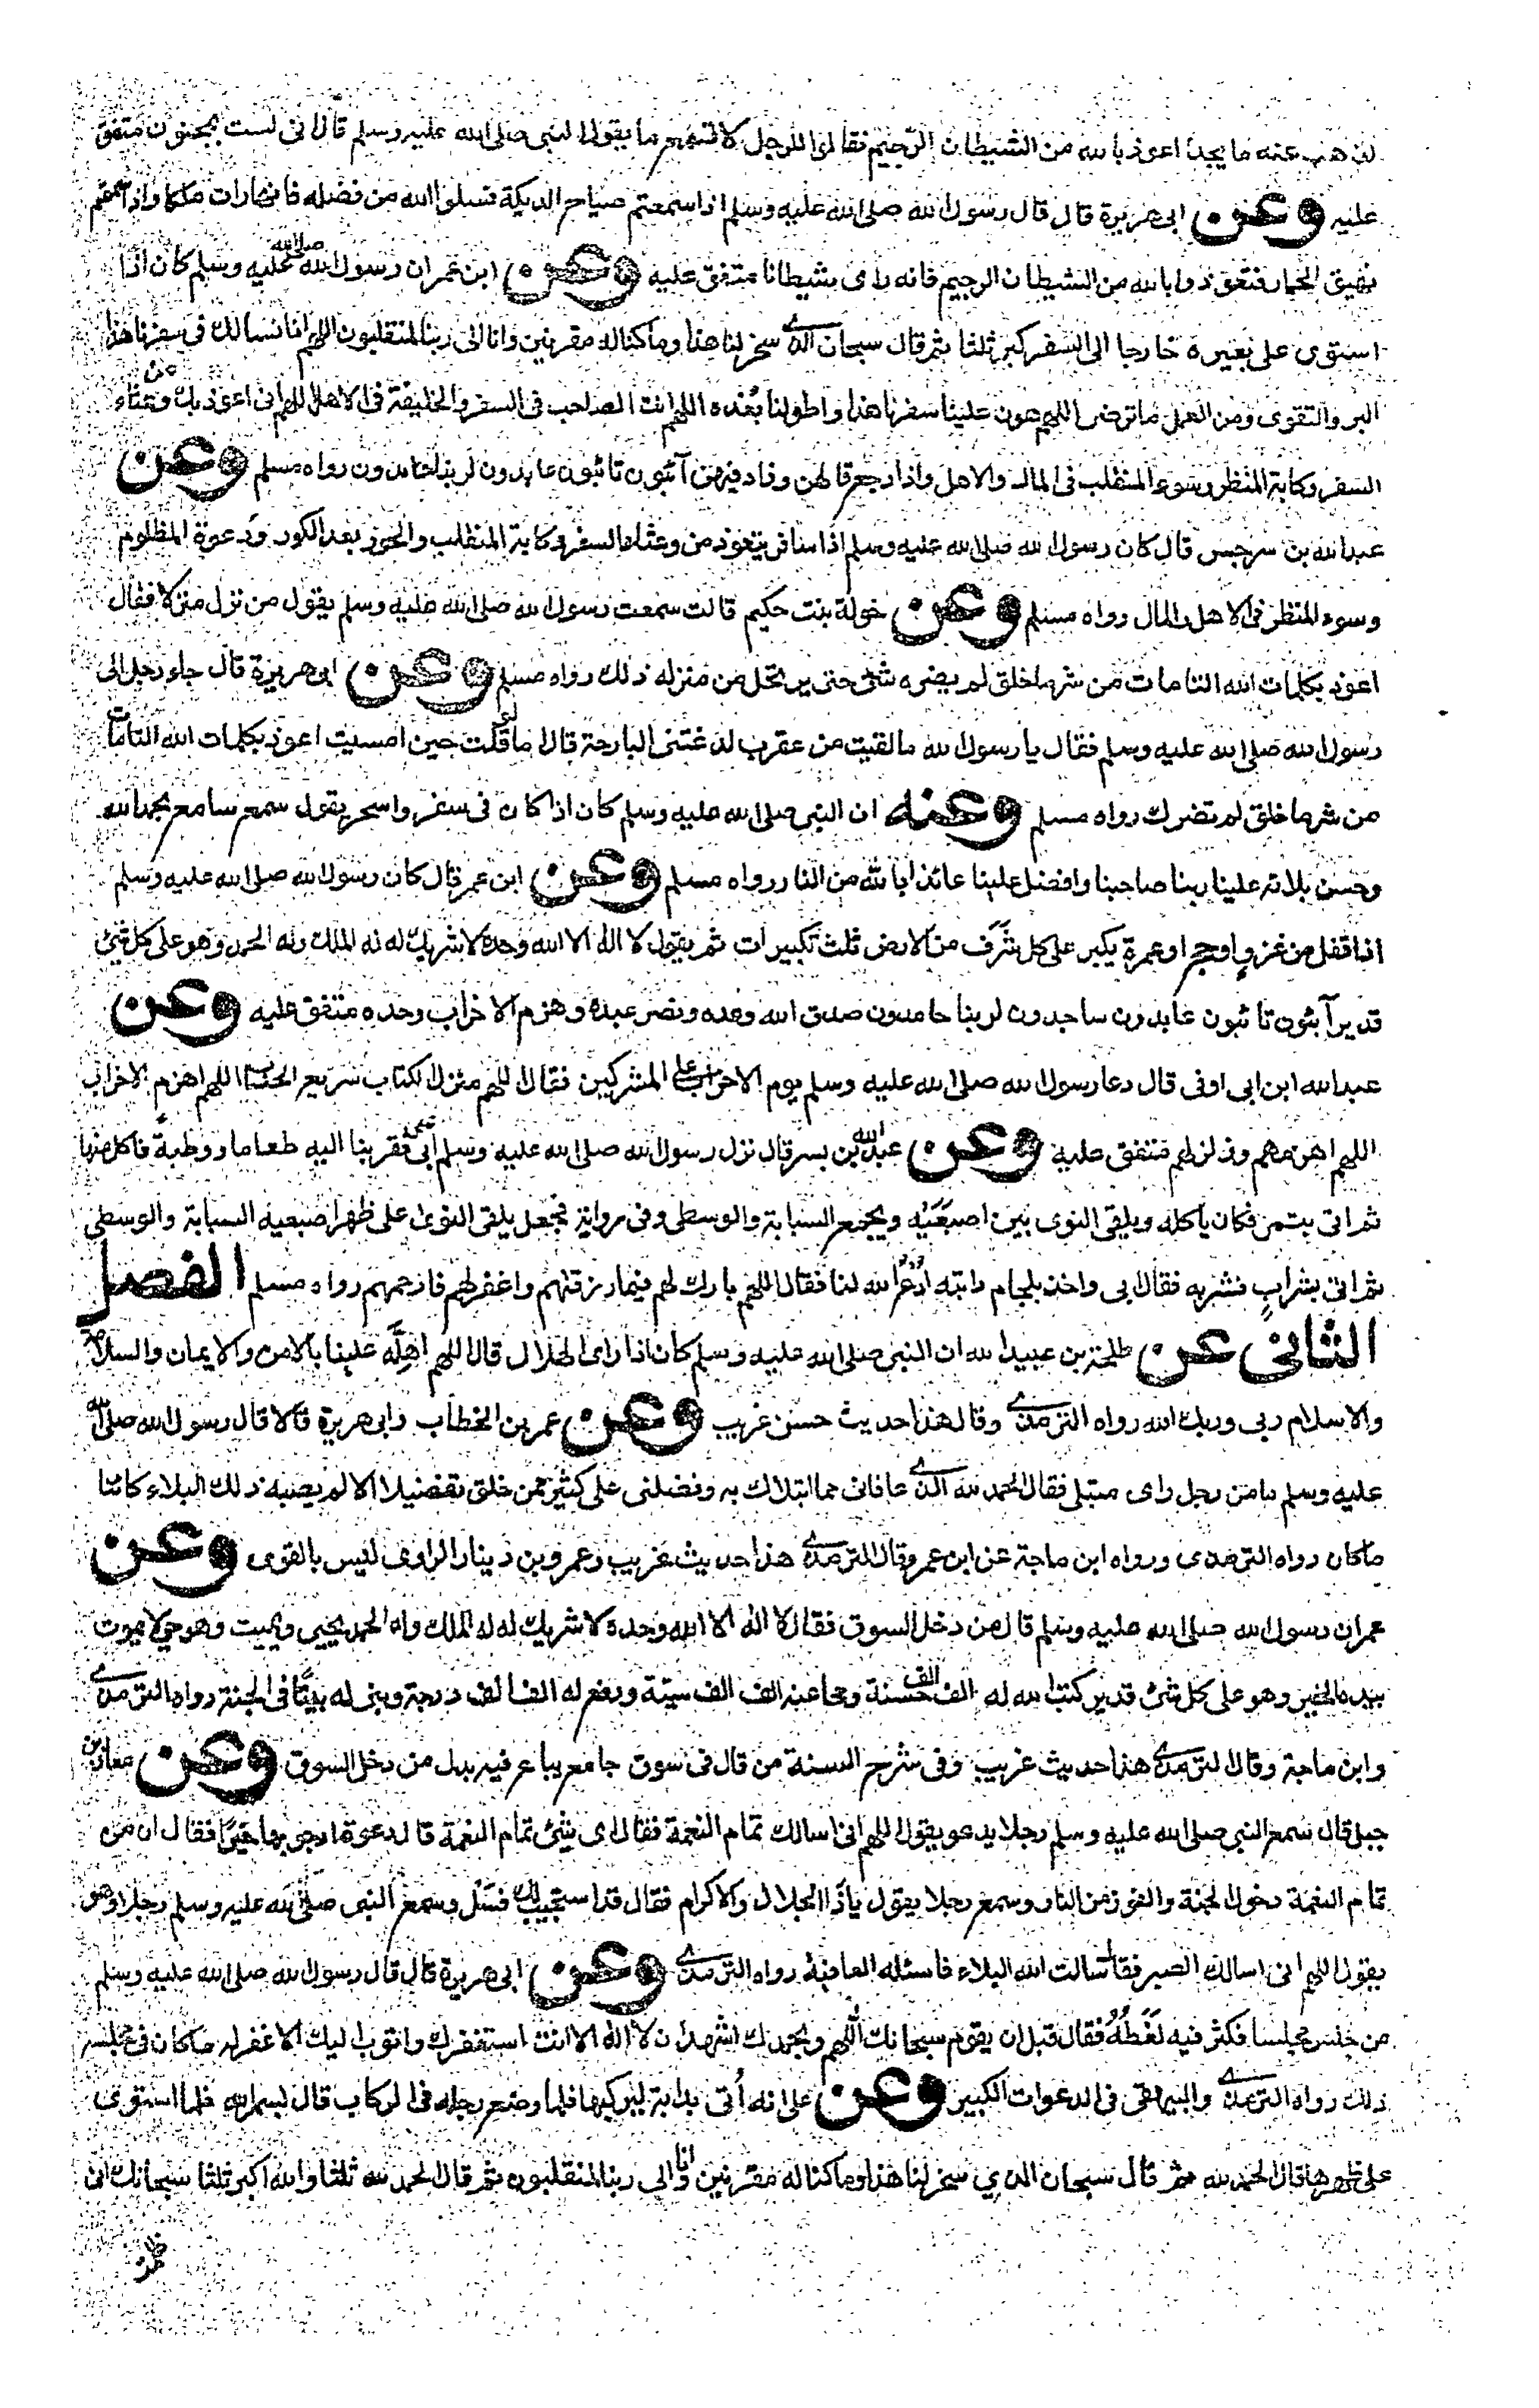 لذهب عنه ما يجد اعوذ بالله من الشيطان الرجيم فقالوا للرجل لا تسمع ما يقول النبى صلى الله عليه وسلم قال انى لست بمجنون متفق
عليه وعن ابى هريرة قال قال رسول الله صلى الله عليه وسلم اذا سمعتم صياح الديكة فسلوا الله من فضله فانها رات ملكا واذا سمعتم
نهيق الحمار فتعوذوا بالله من الشيطان الرجيم فانه راى شيطانا متفق عليه وعن ابن عمر ان رسول الله صلى الله عليه وسلم كان اذا
استوى على بعيره خارجا الى السفر كبر ثلثا ثم قال سبحان الذى سخر لنا هذا وما كنا له مقرنين وانا الى ربنا لمنقلبون اللهم انا نسالك فى سفرنا هذا
البر والتقوى ومن العمل ما ترضى اللهم هون علينا سفرنا هذا واطو لنا بعده اللهم انت الصاحب فى السفر والخليفة فى الاهل اللهم انى اعوذ بك من وعثاء
السفر وكابة المنظر وسوء المنقلب فى المال والاهل واذا رجع قالهن وزاد فيهن آئبون تائبون عابدون لربنا حامدون رواه مسلم وعن
عبدالله بن سرجس قال كان رسول الله صلى الله عليه وسلم اذا سافر يتعوذ من وعثاء السفر وكابة المنقلب والحور بعد الكور ودعوة المظلوم
وسوء المنظر فى الاهل والمال رواه مسلم وعن خولة بنت حكيم قالت سمعت رسول الله صلى الله عليه وسلم يقول من نزل منزلا فقال
اعوذ بكلمات الله التامات من شر ما خلق لم يضره شئ حتى يرتحل من منزله ذلك رواه مسلم وعن ابى هريرة قال جاء رجل الى
رسول الله صلى الله عليه وسلم فقال يا رسول الله ما لقيت من عقرب لدغتنى البارحة قال اما لو قلت حين امسيت اعوذ بكلمات الله التامات
من شر ما خلق لم تضرك رواه مسلم وعنه ان النبى صلى الله عليه وسلم كان اذا كان فى سفر واسحر يقول سمع سامع بحمد الله
وحسن بلائه علينا ربنا صاحبنا وافضل علينا عائذا بالله من النار رواه مسلم وعن ابن عمر قال كان رسول الله صلى الله عليه وسلم
اذا قفل من غزو او حج او عمرة يكبر على كل شرف من الارض ثلث تكبيرات ثم يقول لا اله الا الله وحده لا شريك له له الملك وله الحمد وهو على كل شئ
قدير آئبون تائبون عابدون ساجدون لربنا حامدون صدق الله وعده ونصر عبده وهزم الاحزاب وحده متفق عليه وعن
عبدالله ابن ابى اوفى قال دعا رسول الله صلى الله عليه وسلم يوم الاحزاب على المشركين فقال اللهم منزل الكتاب سريع الحساب اللهم اهزم الاحزاب
اللهم اهزمهم وزلزلهم متفق عليه وعن عبدالله بن بسر قال نزل رسول الله صلى الله عليه وسلم على ابى فقربنا اليه طعاما ووطبة فاكل منها
ثم اتى بتمر فكان ياكله ويلقى النوى بين اصبعيه ويجمع السبابة والوسطى وفى رواية فجعل يلقى النوى على ظهر اصبعيه السبابة والوسطى
ثم اتى بشراب فشربه فقال ابى واخذ بلجام دابته ادع الله لنا فقال اللهم بارك لهم فيما رزقتهم واغفر لهم فارحمهم رواه مسلم الفصل
الثانى عن طلحة بن عبيدالله ان النبى صلى الله عليه وسلم كان اذا راى الهلال قال اللهم اهله علينا بالامن والايمان والسلامة
والاسلام ربى وربك الله رواه الترمذى وقال هذا حديث حسن غريب وعن عمر بن الخطاب وابى هريرة قالا قال رسول الله صلى الله
عليه وسلم ما من رجل راى مبتلى فقال الحمد لله الذى عافانى مما ابتلاك به وفضلنى على كثير ممن خلق تفضيلا الا لم يصبه ذلك البلاء كائنا
ماكان رواه الترمذى ورواه ابن ماجة عن ابن عمر وقال الترمذى هذا حديث غريب وعمرو بن دينار الراوى ليس بالقوى وعن
عمر ان رسول الله صلى الله عليه وسلم قال من دخل السوق فقال لا اله الا الله وحده لا شريك له له الملك وله الحمد يحيى ويميت وهو حى لا يموت
بيده الخير وهو على كل شئ قدير كتب الله له الف الف حسنة ومحا عنه الف الف سيئة ورفع له الف الف درجة وبنى له بيتا فى الجنة رواه الترمذى
وابن ماجة وقال الترمذى هذا حديث غريب وفى شرح السنة من قال فى سوق جامع يباع فيه بدل من دخل السوق وعن معاذ بن
جبل قال سمع النبى صلى الله عليه وسلم رجلا يدعو يقول اللهم انى اسالك تمام النعمة فقال اى شئ تمام النعمة قال دعوة ارجو بها خيرا فقال ان من
تمام النعمة دخول الجنة والفوز من النار وسمع رجلا يقول يا ذا الجلال والاكرام فقال قد استجيب لك فسل وسمع النبى صلى الله عليه وسلم رجلا وهو
يقول اللهم انى اسالك الصبر فقال سالت الله البلاء فاسئله العافية رواه الترمذى وعن ابى هريرة قال قال رسول الله صلى الله عليه وسلم
من جلس مجلسا فكثر فيه لغطه فقال قبل ان يقوم سبحانك اللهم وبحمدك اشهد ان لا اله الا انت استغفرك واتوب اليك الا غفر له ماكان فى مجلسه
ذلك رواه الترمذى والبيهقى فى الدعوات الكبير وعن على انه اتى بدابة ليركبها فلما وضع رجله فى الركاب قال بسم الله فلما استوى
على ظهرها قال الحمد لله ثم قال سبحان الذي سخر لنا هذا وما كنا له مقرنين وانا الى ربنا لمنقلبون ثم قال الحمد لله ثلثا والله اكبر ثلثا سبحانك انى